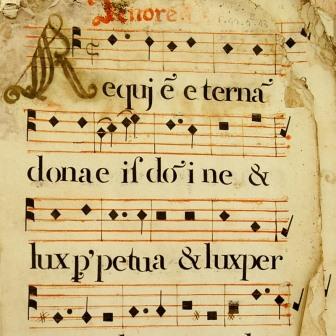 Tenore
Requi ẽ e ternã
donae is dõ i ne &
lux p'petua & luxper